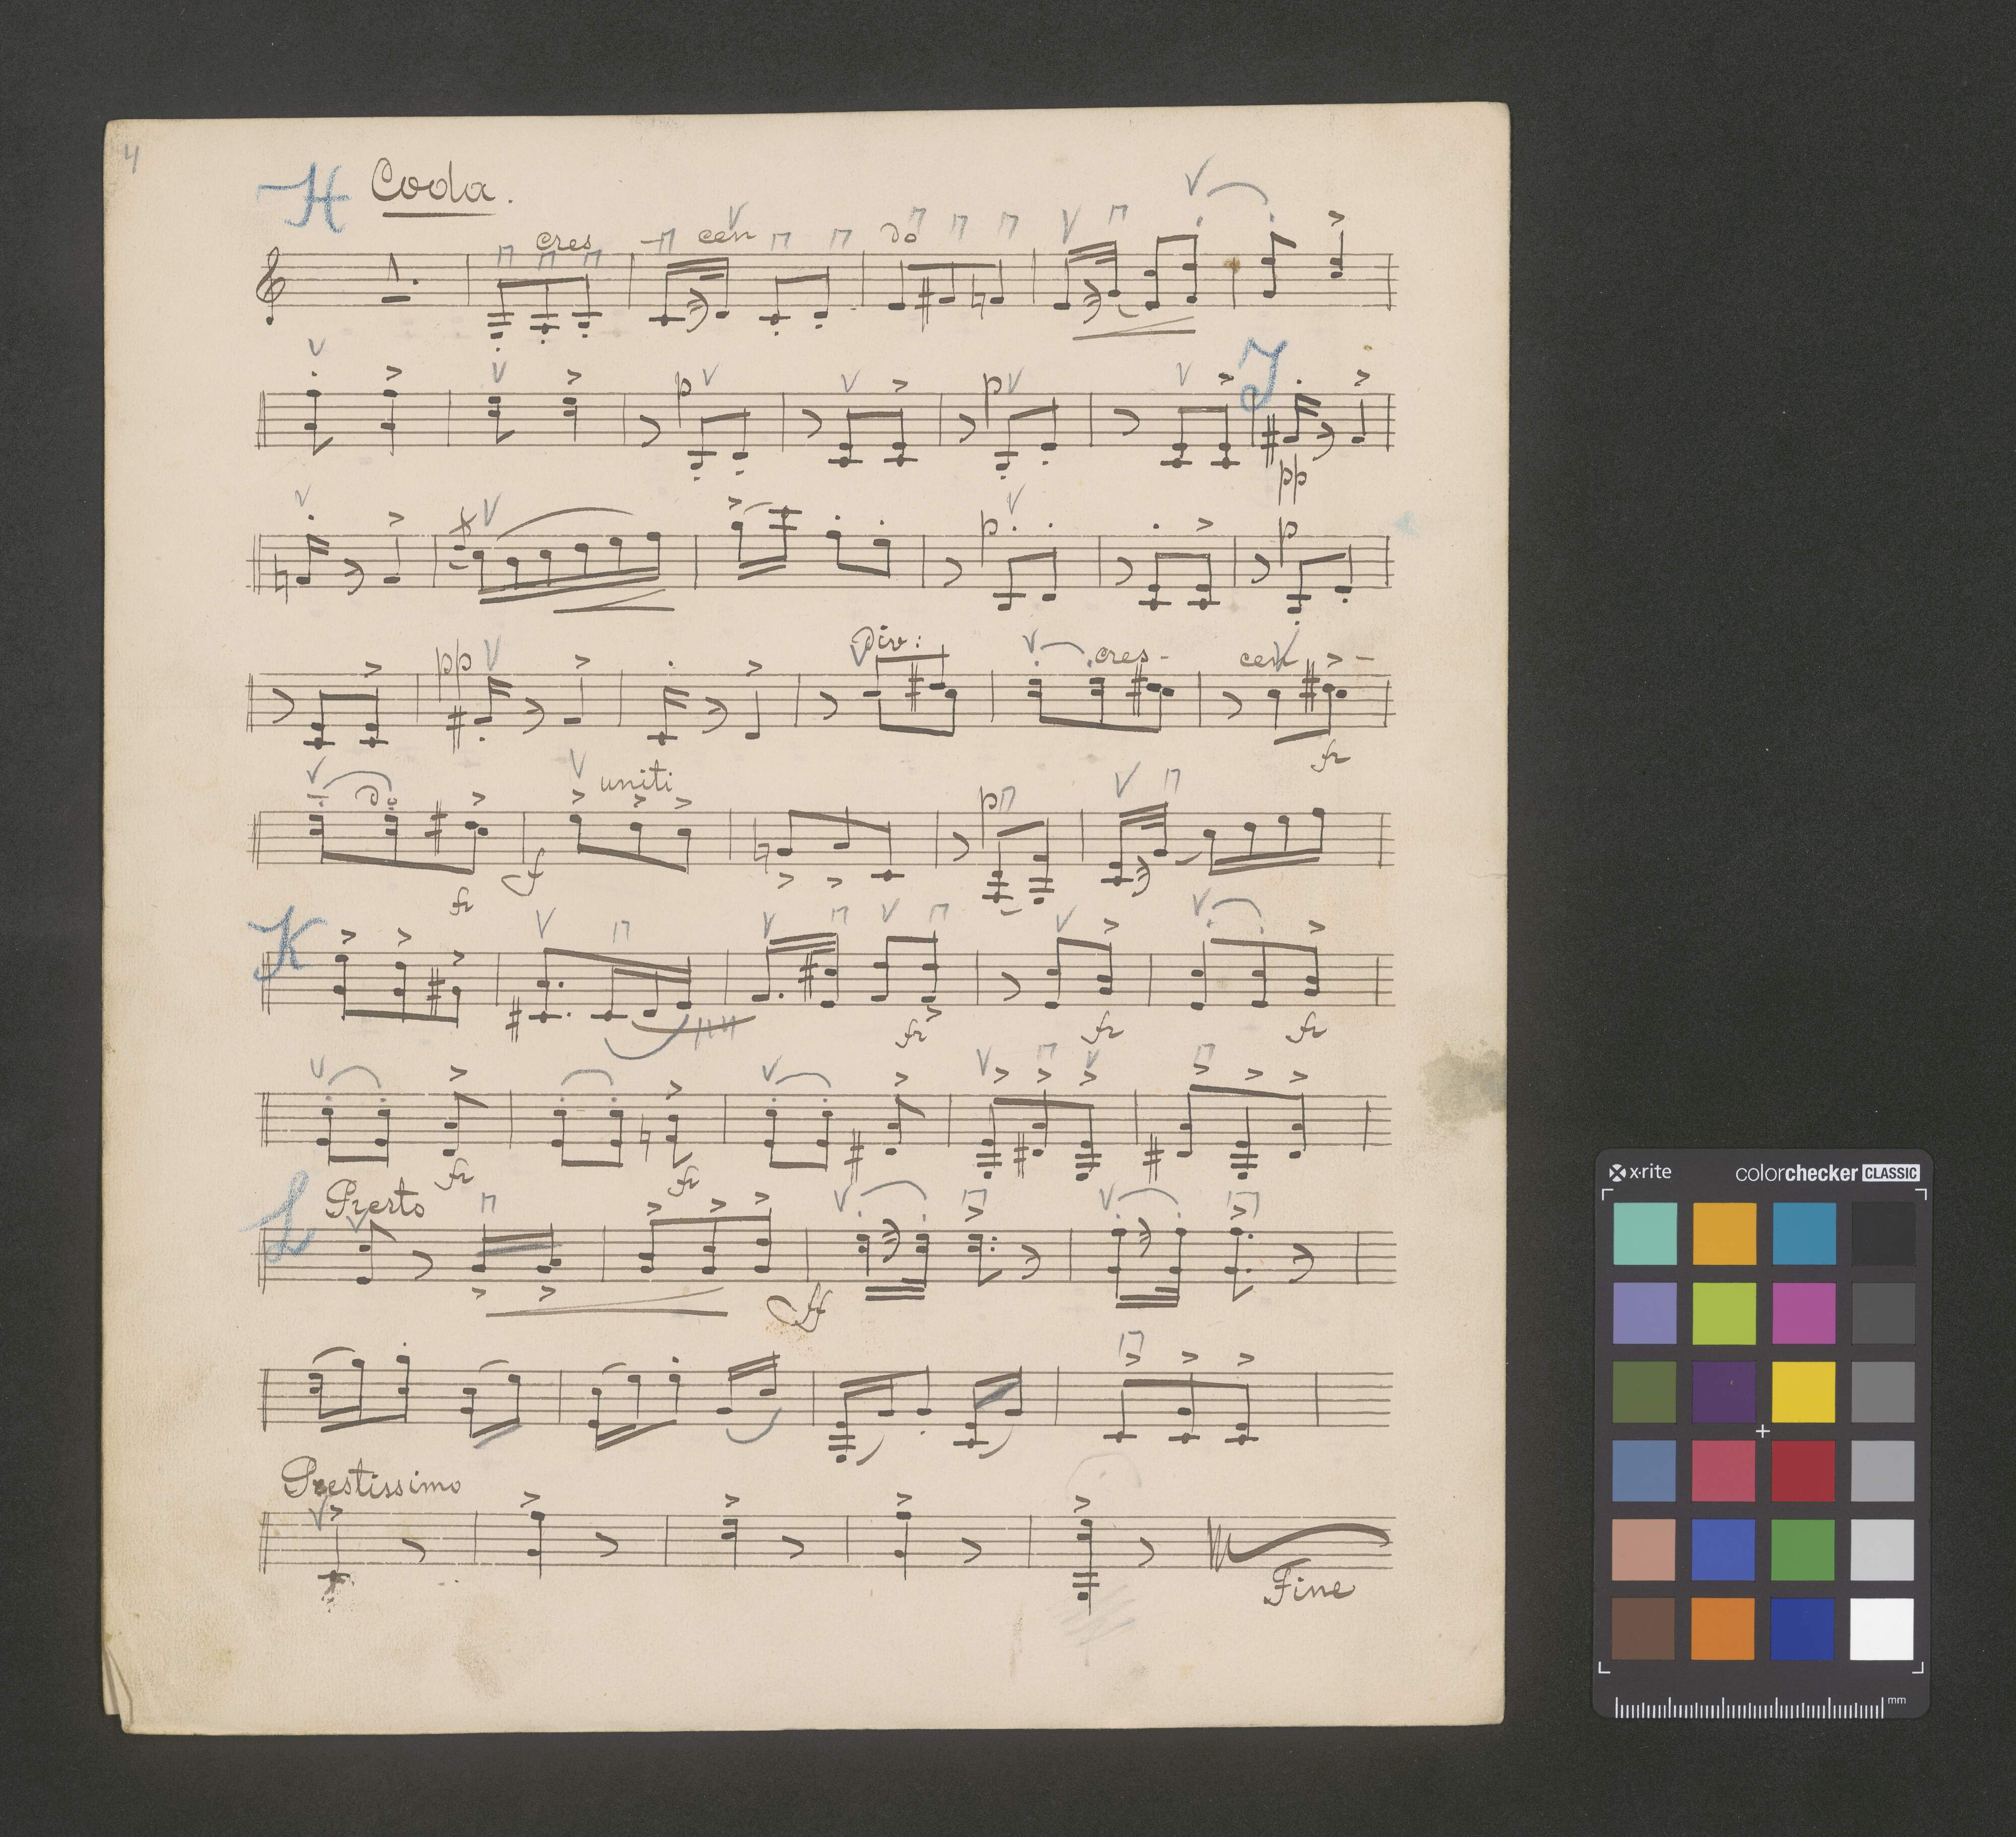 4
H Coda.
cres - cen do
p p J
pp
p p
pp Div: cres - cen -
fz
do uniti
p
fz f
K
fz fz fz
fz fz
L Presto
ff
Prestissimo
Fine
x-rite colorchecker CLASSIC
mm